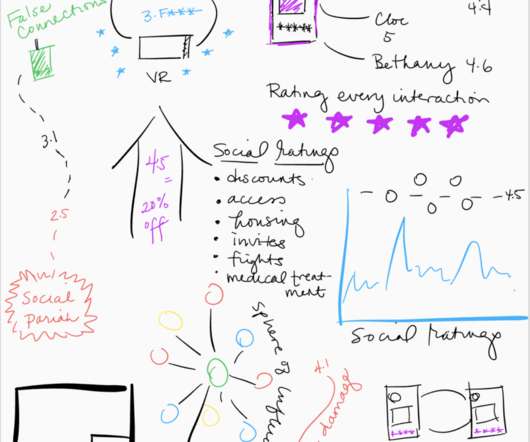 False
Connections
3. F****
VR
4.4
Cloc
5
Bethany 4.6
Rating every interaction
3.1
2.5
Social
Pariah
4.5
=
20%
off
Social Ratings
• discounts
• access
• housing
• invites
• flights
• medical treat-
ment
4.5
Social Ratings
sphere of
4.1
damage